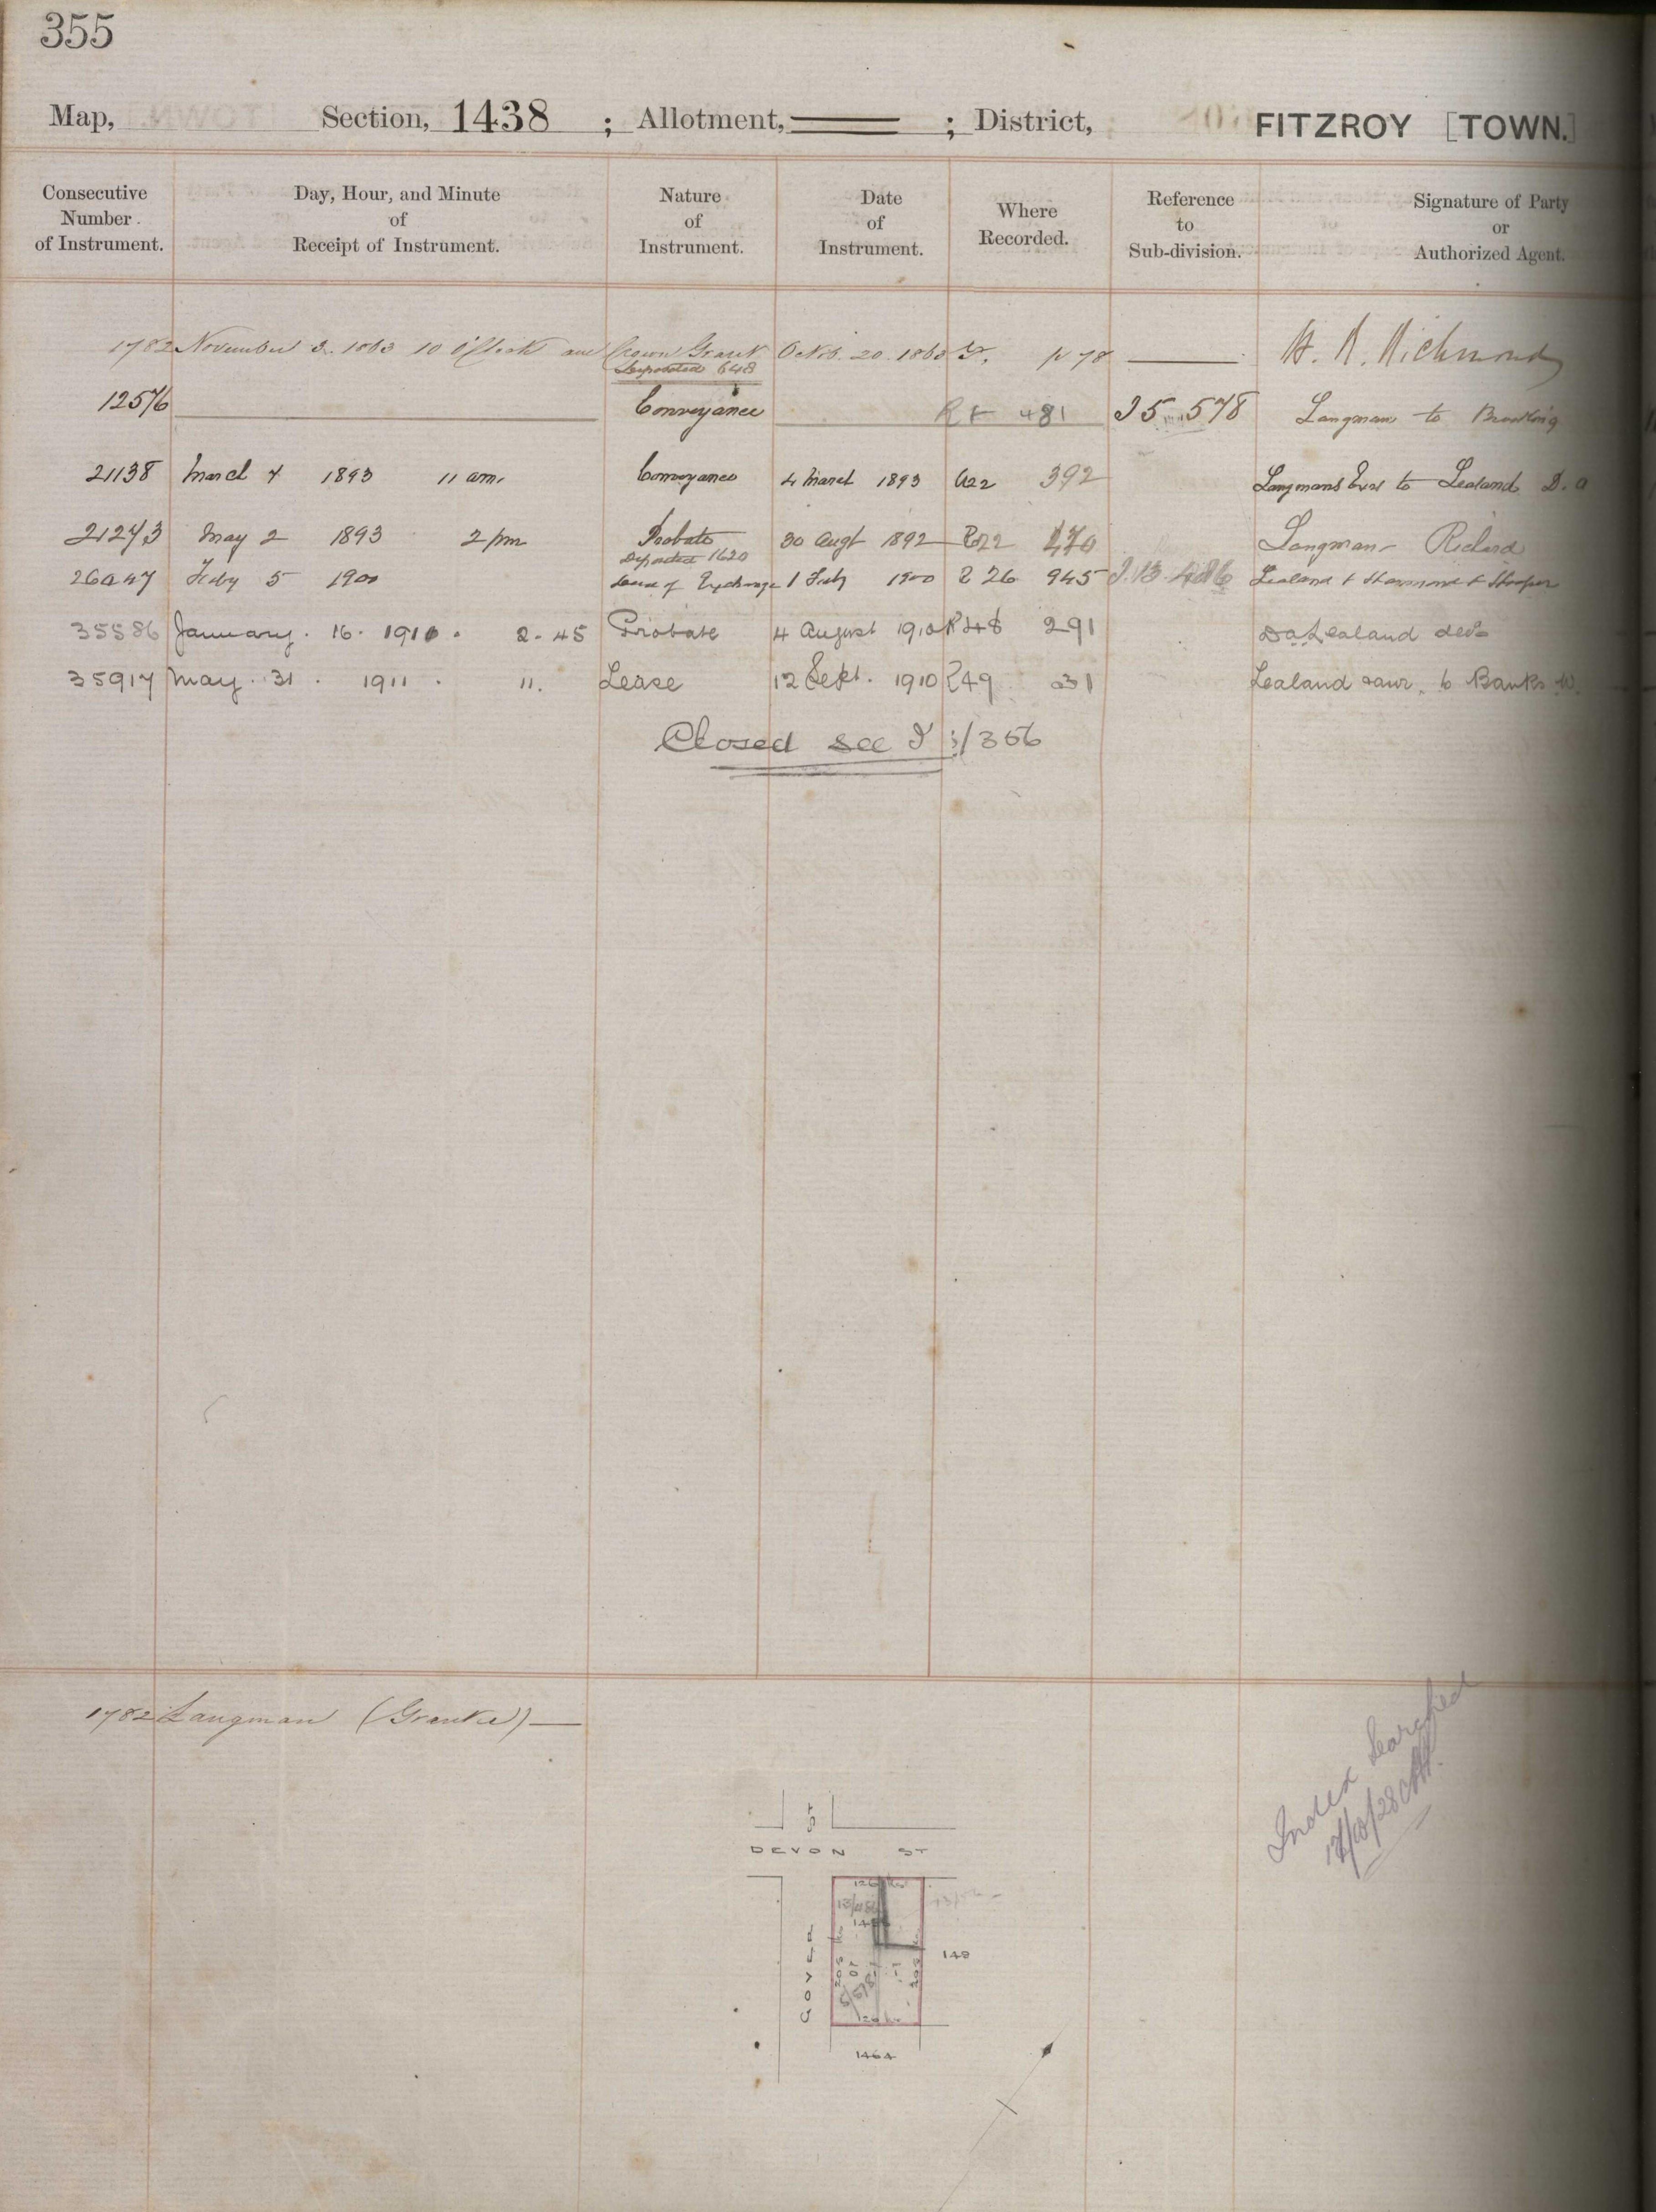 355
Map, Section, 1438 ; Allotment, ; District, FITZROY [TOWN.]
Consecutive Number of Instrument. Day, Hour, and Minute of Receipt of Instrument. Nature of Instrument. Date of Instrument. Where Recorded. Reference to Sub-division. Signature of Party or Authorized Agent.
1782 November 3. 1863 10 o'clock Crown Grant 20. 1863 78 H. R. Richmond
648
12576 Conveyance 481 I5 578 Langman to Brooking
21138 March 7 1893 11 am. Conveyance 4 March 1893 R22 392 Langmans Exor to Lealand D. A
21243 May 2 1893 2 pm Probate 30 Augt 1892 R22 470 Langman Richard
Deposited 1620
26047 Feby 5 1900 Deed of Exchange 1 Feby 1900 R 26 945 I.13 486 Lealand &
35586 January. 16. 1911. 2-45 Probate 4 August 1910 R48 291 D.A. Lealand decd
35917 May. 31. 1911. 11. Lease 12 Sept. 1910 R49 231 Lealand to Banks W.
Closed see I /356
1782 Langman (Grantee)
Index Searched
ST
DEVON ST
GOVER
126
205
126
148
1464